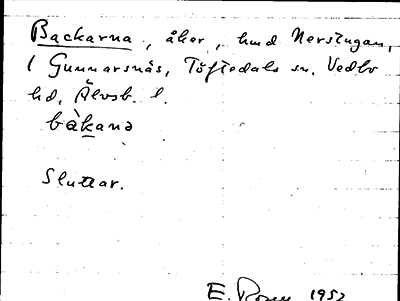 Backarna, åker, hmd Nerstugan,
1 Gunnarsnäs, Töftedals sn. Vedbo
hd, Älvsb. l.
bàkanə
Sluttar.
E. Rosen 1952